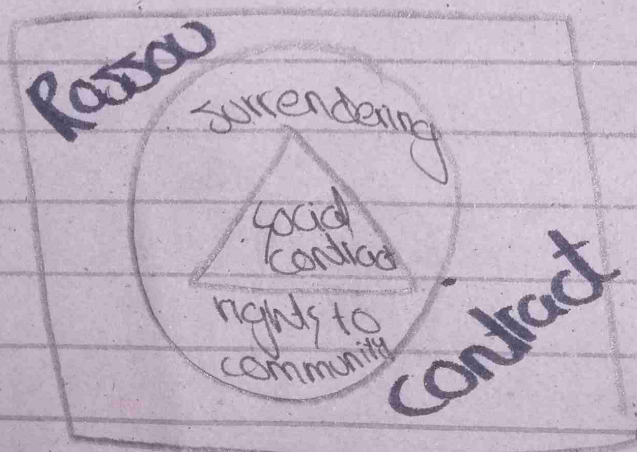 Rossou
surrendering
social
contract
rights to
community
contract